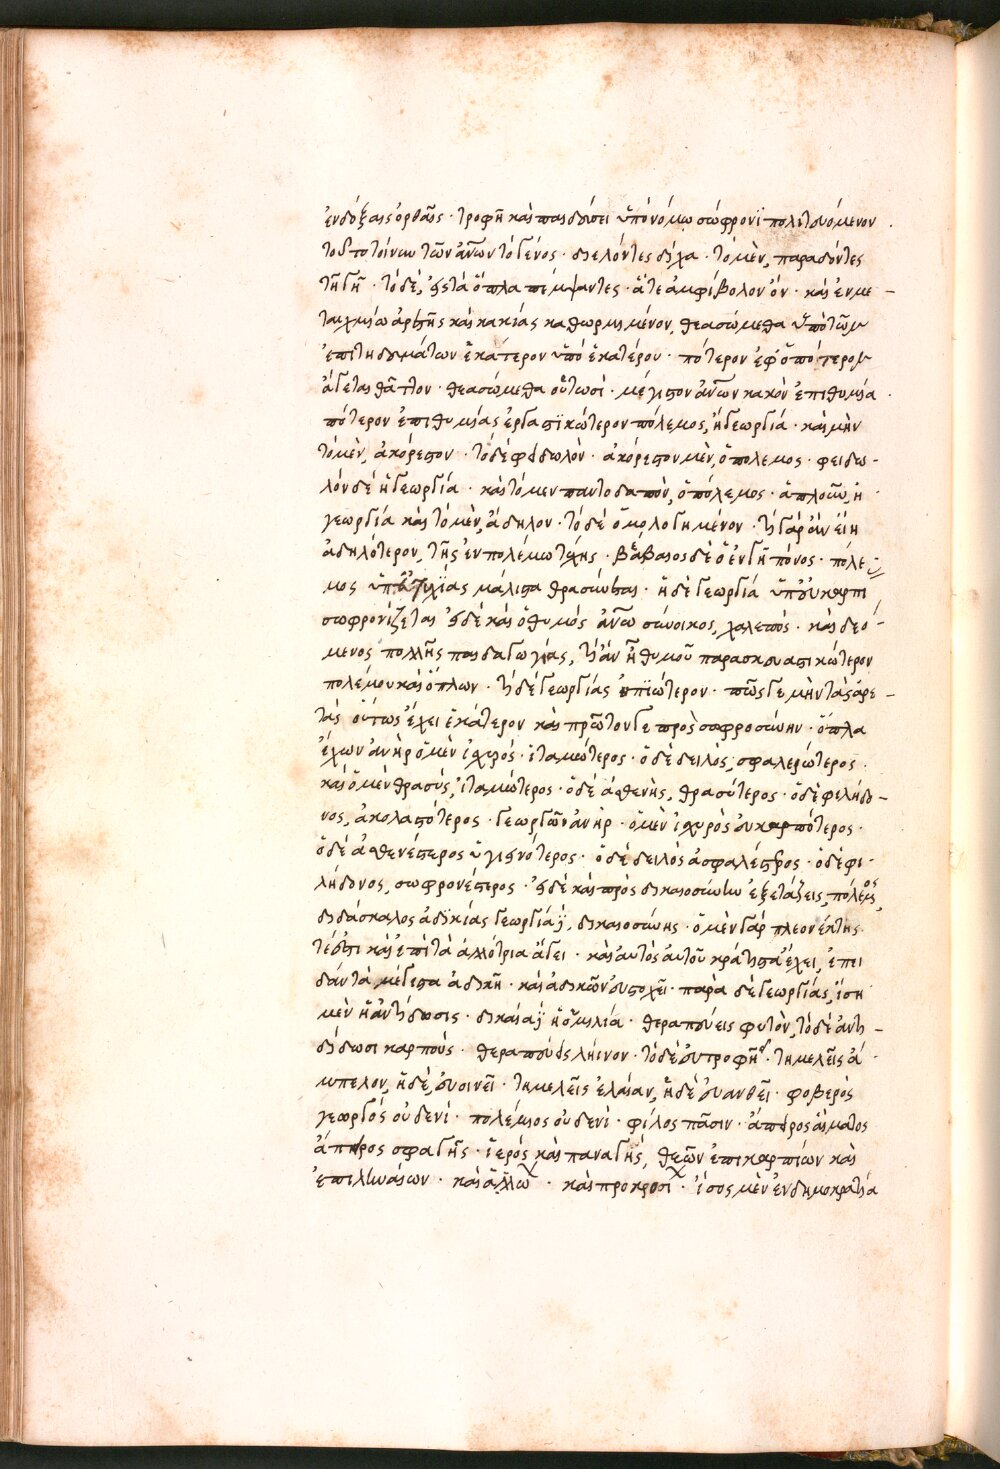 ἐν δόξαις ὀρθαῖς · τροφῇ καὶ παιδεύσει ὑπὸ νόμῳ σώφρονι πολιτευόμενον ·
τουτοτοίνυν τῶν ἀνων τὸ γένος · διελόντες δίχα · τὸ μὲν, παραδόντες
τῇ γῇ · τὸ δὲ, ἐς τὰ ὅπλα πέμψαντες · ἅτε ἀμφίβολον ὂν · καὶ ἐν με -
ταιχμίω ἀρετῆς καὶ κακίας καθωρμισμένον, θεασώμεθα ὑπὸ τῶν
ἐπιτηδευμάτων ἑκάτερον ὑπὸ ἑκατέρου · πότερον ἐφ' ὁπότερον
ἄγεται θᾶττον · θεασώμεθα οὑτωσὶ · μέγιστον ἀνων κακὸν ἐπιθυμία ·
πότερον ἐπιθυμίας ἐργαστικώτερον πόλεμος, ἢ γεωργία · καὶ μὴν
τὸ μὲν, ἀκόρεστον · τὸ δὲ φειδωλὸν · ἀκόρεστον μὲν, ὁ πόλεμος · φειδω -
λὸν δὲ ἡ γεωργία · καὶ τὸ μὲν παντοδαπὸν, ὁ πόλεμος · ἁπλοῦν, ἡ
γεωργία καὶ τὸ μὲν, ἄδηλον · τὸ δὲ ὁμολογημένον · τί γὰρ ἂν εἴη
ἀδηλότερον, τῆς ἐν πολέμω τύχης · βέβαιος δὲ ὁ ἐν γῇ πόνος · πόλε
μος ὑπ' εὐτυχίας μάλιστα θρασύνεται · ἡ δὲ γεωργία ὑπ' εὐκαρπί
σωφρονίζεται ἐς δὲ καὶ ὁ θυμὸς ἀνω σύνοικος, χαλεπὸς · καὶ δεό -
μενος πολλῆς παιδαγωγίας, τί ἂν ᾖ θυμοῦ παρασκευαστικώτερον
πολέμου καὶ ὅπλων · τί δὲ γεωργίας ἠπιώτερον · πῶς γε μὴν τὰς ἀρε -
τὰς οὕτως ἔχει ἑκάτερον καὶ πρῶτον γε πρὸς σωφροσύνην · ὅπλα
ἔχων ἀνὴρ ὁ μὲν ἰσχυρός · ἰταμώτερος · ὁ δὲ δειλὸς, σφαλερώτερος ·
καὶ ὁ μὲν θρασὺς, ἰταμώτερος · ὁ δὲ ἀσθενὴς, θρασύτερος · ὁ δὲ φιλήδο -
νος, ἀκολαστότερος · γεωργῶν ἀνὴρ · ὁ μὲν ἰσχυρὸς εὐκαρπότερος ·
ὁ δὲ ἀσθενέστερος ὑγιεινότερος · ὁ δὲ δειλὸς ἀσφαλέστερος · ὁ δὲ φι ·
λήδονος, σωφρονέστερος · ἐς δὲ καὶ πρὸς δικαιοσύνην ἐξετάζεις, πόλεμος,
διδάσκαλος ἀδικίας γεωργία δὲ, δικαιοσύνης · ὁ μὲν γὰρ πλεονέκτης.
τέ ἐστι καὶ ἐπὶ τὰ ἀλλότρια ἄγει · καὶ αὐτὸς αὑτοῦ κράτιστα ἔχει, ἐπει
δὰν τὰ μέγιστα ἀδικῇ · καὶ ἀδικῶν εὐστοχῇ · παρὰ δὲ γεωργίας, ἴση
μὲν ἡ ἀντίδοσις · δικαία δὲ ἡ ὁμιλία · θεραπεύεις φυτὸν, τὸ δὲ ἀντι -
δίδωσι καρποὺς · θεραπεύεις λήινον · τὸ δὲ εὐτροφῇ · τημελεῖς ἄ ·
μπελον, ἡ δὲ, εὐοινεῖ · τημελεῖς ἐλαίαν, ἡ δὲ εὐανθεῖ · φοβερὸς
γεωργὸς οὐδενὶ · πολέμιος οὐδενὶ · φίλος πᾶσιν · ἄπειρος αἵματος
ἄπειρος σφαγῆς · ἱερὸς καὶ παναγὴς, θεῶν ἐπικαρπίων καὶ
ἐπιληναίων · καὶ ἀλλω · καὶ προηροσι · ἴσος μὲν ἐν δημοκρατία